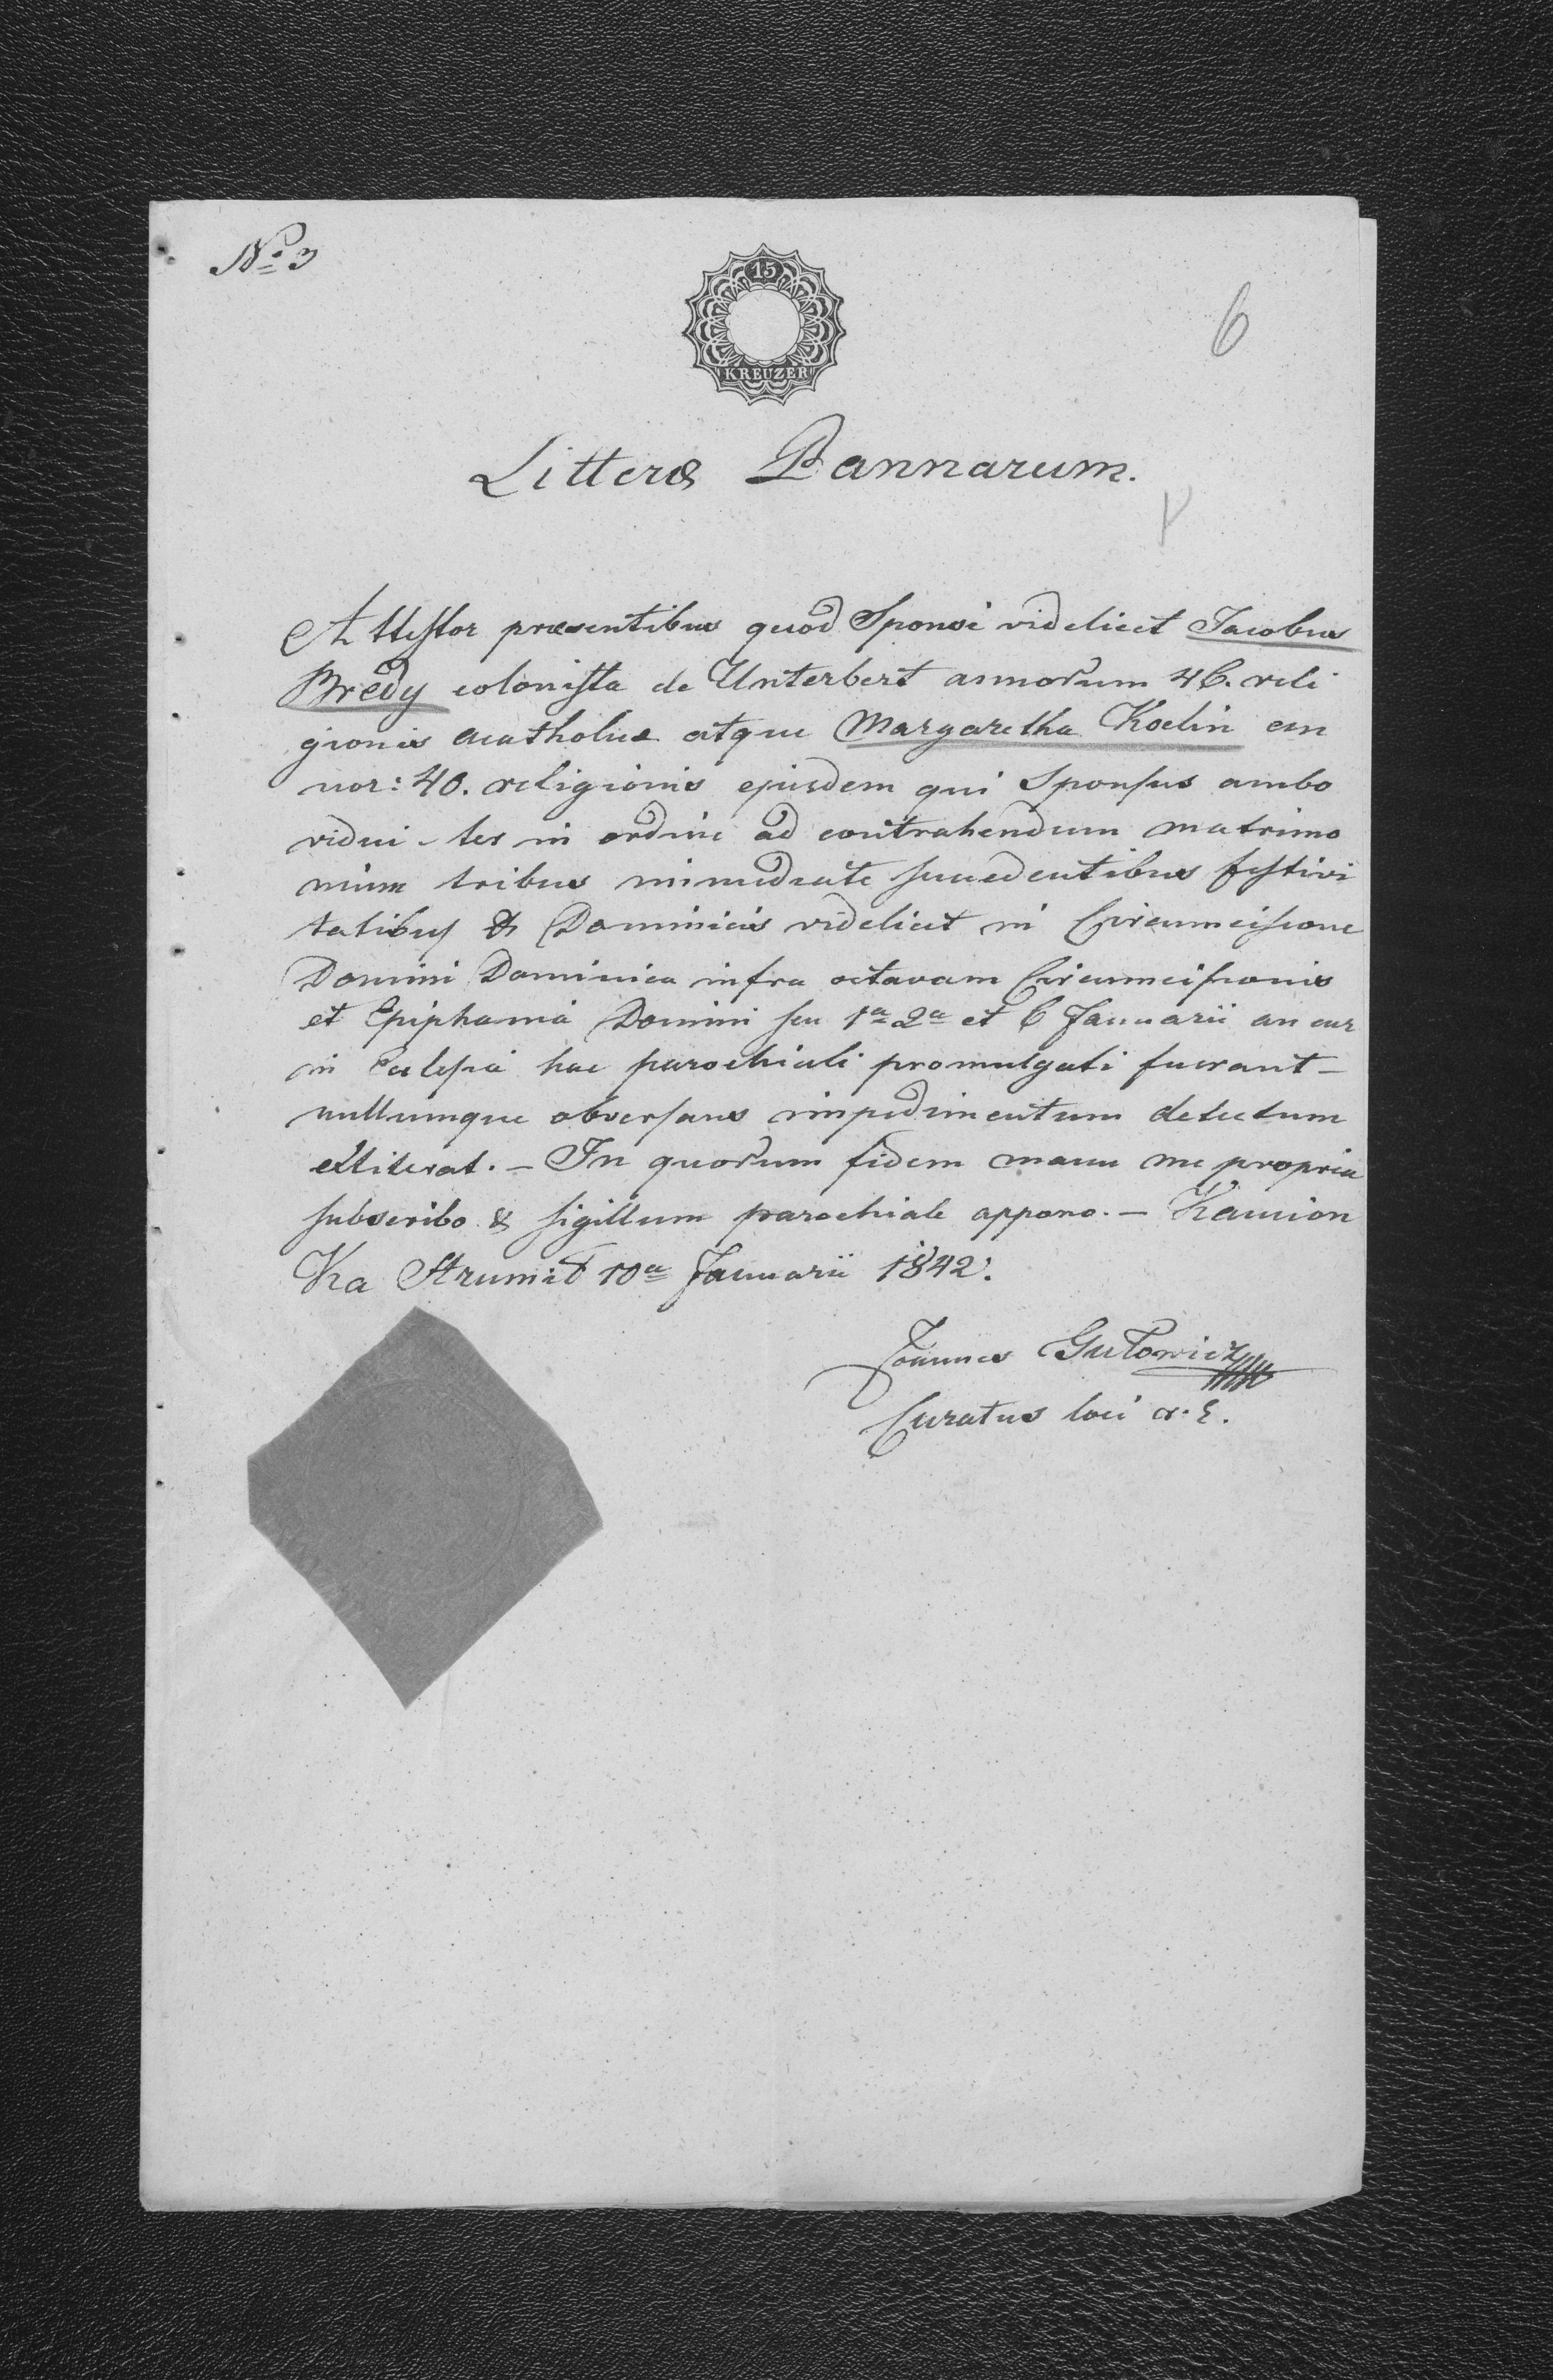 No 3
15
KREUZER
6
Litteræ Bannarum.
Attestor præsentibus quod Sponsi videlicet Jacobus
Bredy colonista de Unterbert annorum 46. reli
gionis acatholicæ atque Margaretha Koelin an
nor: 40. religionis ejusdem qui Sponsus ambo
vidui ter in ordine ad contrahendum matrimo
nium tribus immediate succedentibus festivi
tatibus & Dominicis videlicet in Circumcisione
Domini Dominica infra octavam Circumcisionis
et Epiphania Domini seu 1a 2a et 6 Januarii an cur
in Eclesia hac parochiali promulgati fuerant –
nullumque obversans impedimentum detectum
extiterat. – In quorum fidem manu me propria
subscribo & sigillum parochiale appono. – Kamion
Ka Strumi 10a Januarii 1842.
Joannes Gutowicz
Curatus loci